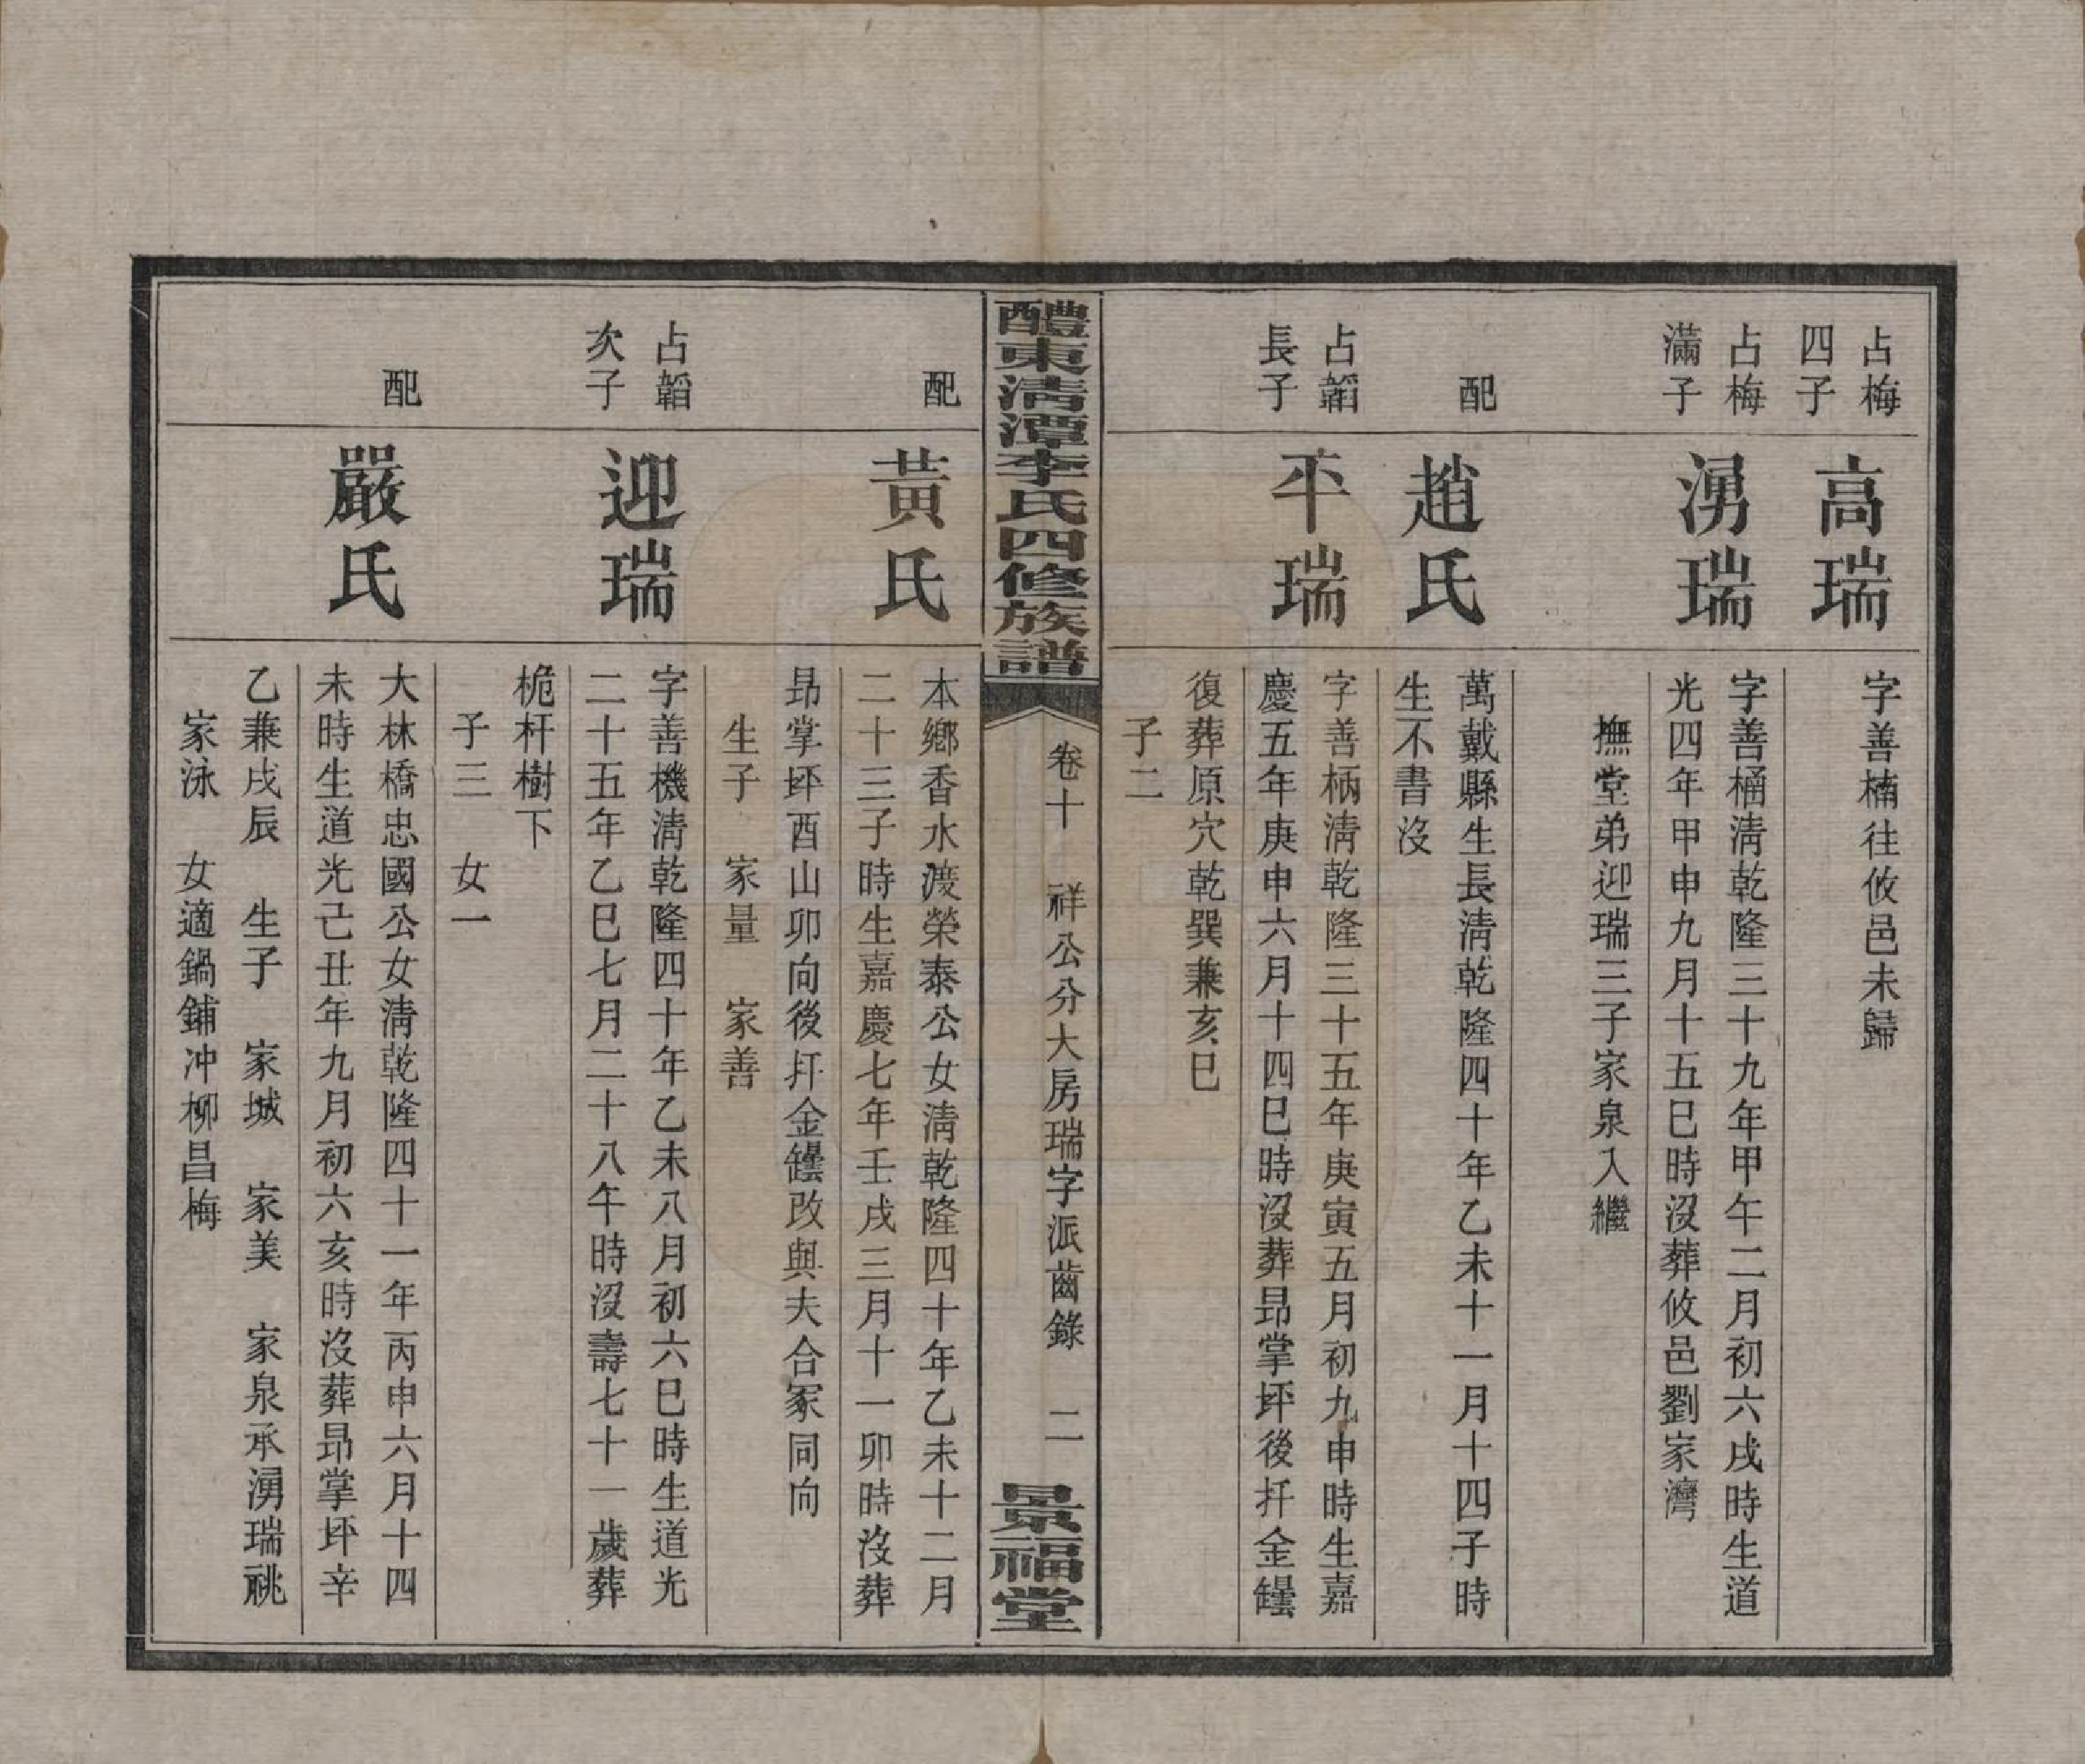 占梅
四子
高瑞
字善楠往攸邑未歸
占梅
滿子
湧瑞
字善桶淸乾隆三十九年甲午二月初六戌時生道
光四年甲申九月十五巳時沒葬攸邑劉家灣
撫堂弟迎瑞三子家泉入繼
配
趙氏
萬戴縣生長淸乾隆四十年乙未十一月十四子時
生不書沒
占韜
長子
平瑞
字善柄淸乾隆三十五年庚寅五月初九申時生嘉
慶五年庚申六月十四巳時沒葬昂掌坪後扦金罍
復葬原穴乾巽兼亥巳
子二
醴東淸潭李氏四修族譜
卷十 祥公分大房瑞字派齒錄 二
景福堂
配
黃氏
本鄉香水渡榮泰公女淸乾隆四十年乙未十二月
二十三子時生嘉慶七年壬戌三月十一卯時沒葬
昂掌坪酉山卯向後扦金罍改與夫合冢同向
生子 家量 家善
占韜
次子
迎瑞
字善機淸乾隆四十年乙未八月初六巳時生道光
二十五年乙巳七月二十八午時沒壽七十一歲葬
桅杆樹下
子三 女一
配
嚴氏
大林橋忠國公女淸乾隆四十一年丙申六月十四
未時生道光己丑年九月初六亥時沒葬昂掌坪辛
乙兼戌辰 生子 家城 家美 家泉承湧瑞祧
家泳 女適鍋鋪冲柳昌梅